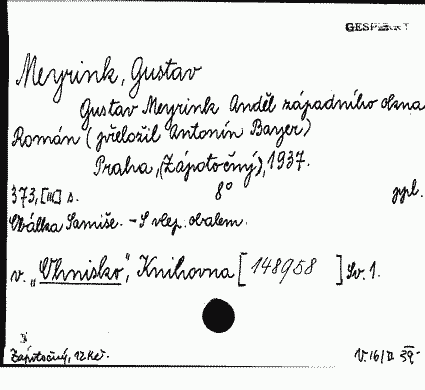 GESPERRT
Meyrink, Gustav
Gustav Meyrink Anděl západního okna
Román (přeložil Antonín Bayer)
Praha, (Zápotočný), 1937.
373, [III] s. 8° ppl.
Obálka Samiše. - S vlep. obalem.
v. „Ohnisko“, Knihovna [148958] Sv. 1.
Zápotočný, 12 Kč. V. 16/II 39.